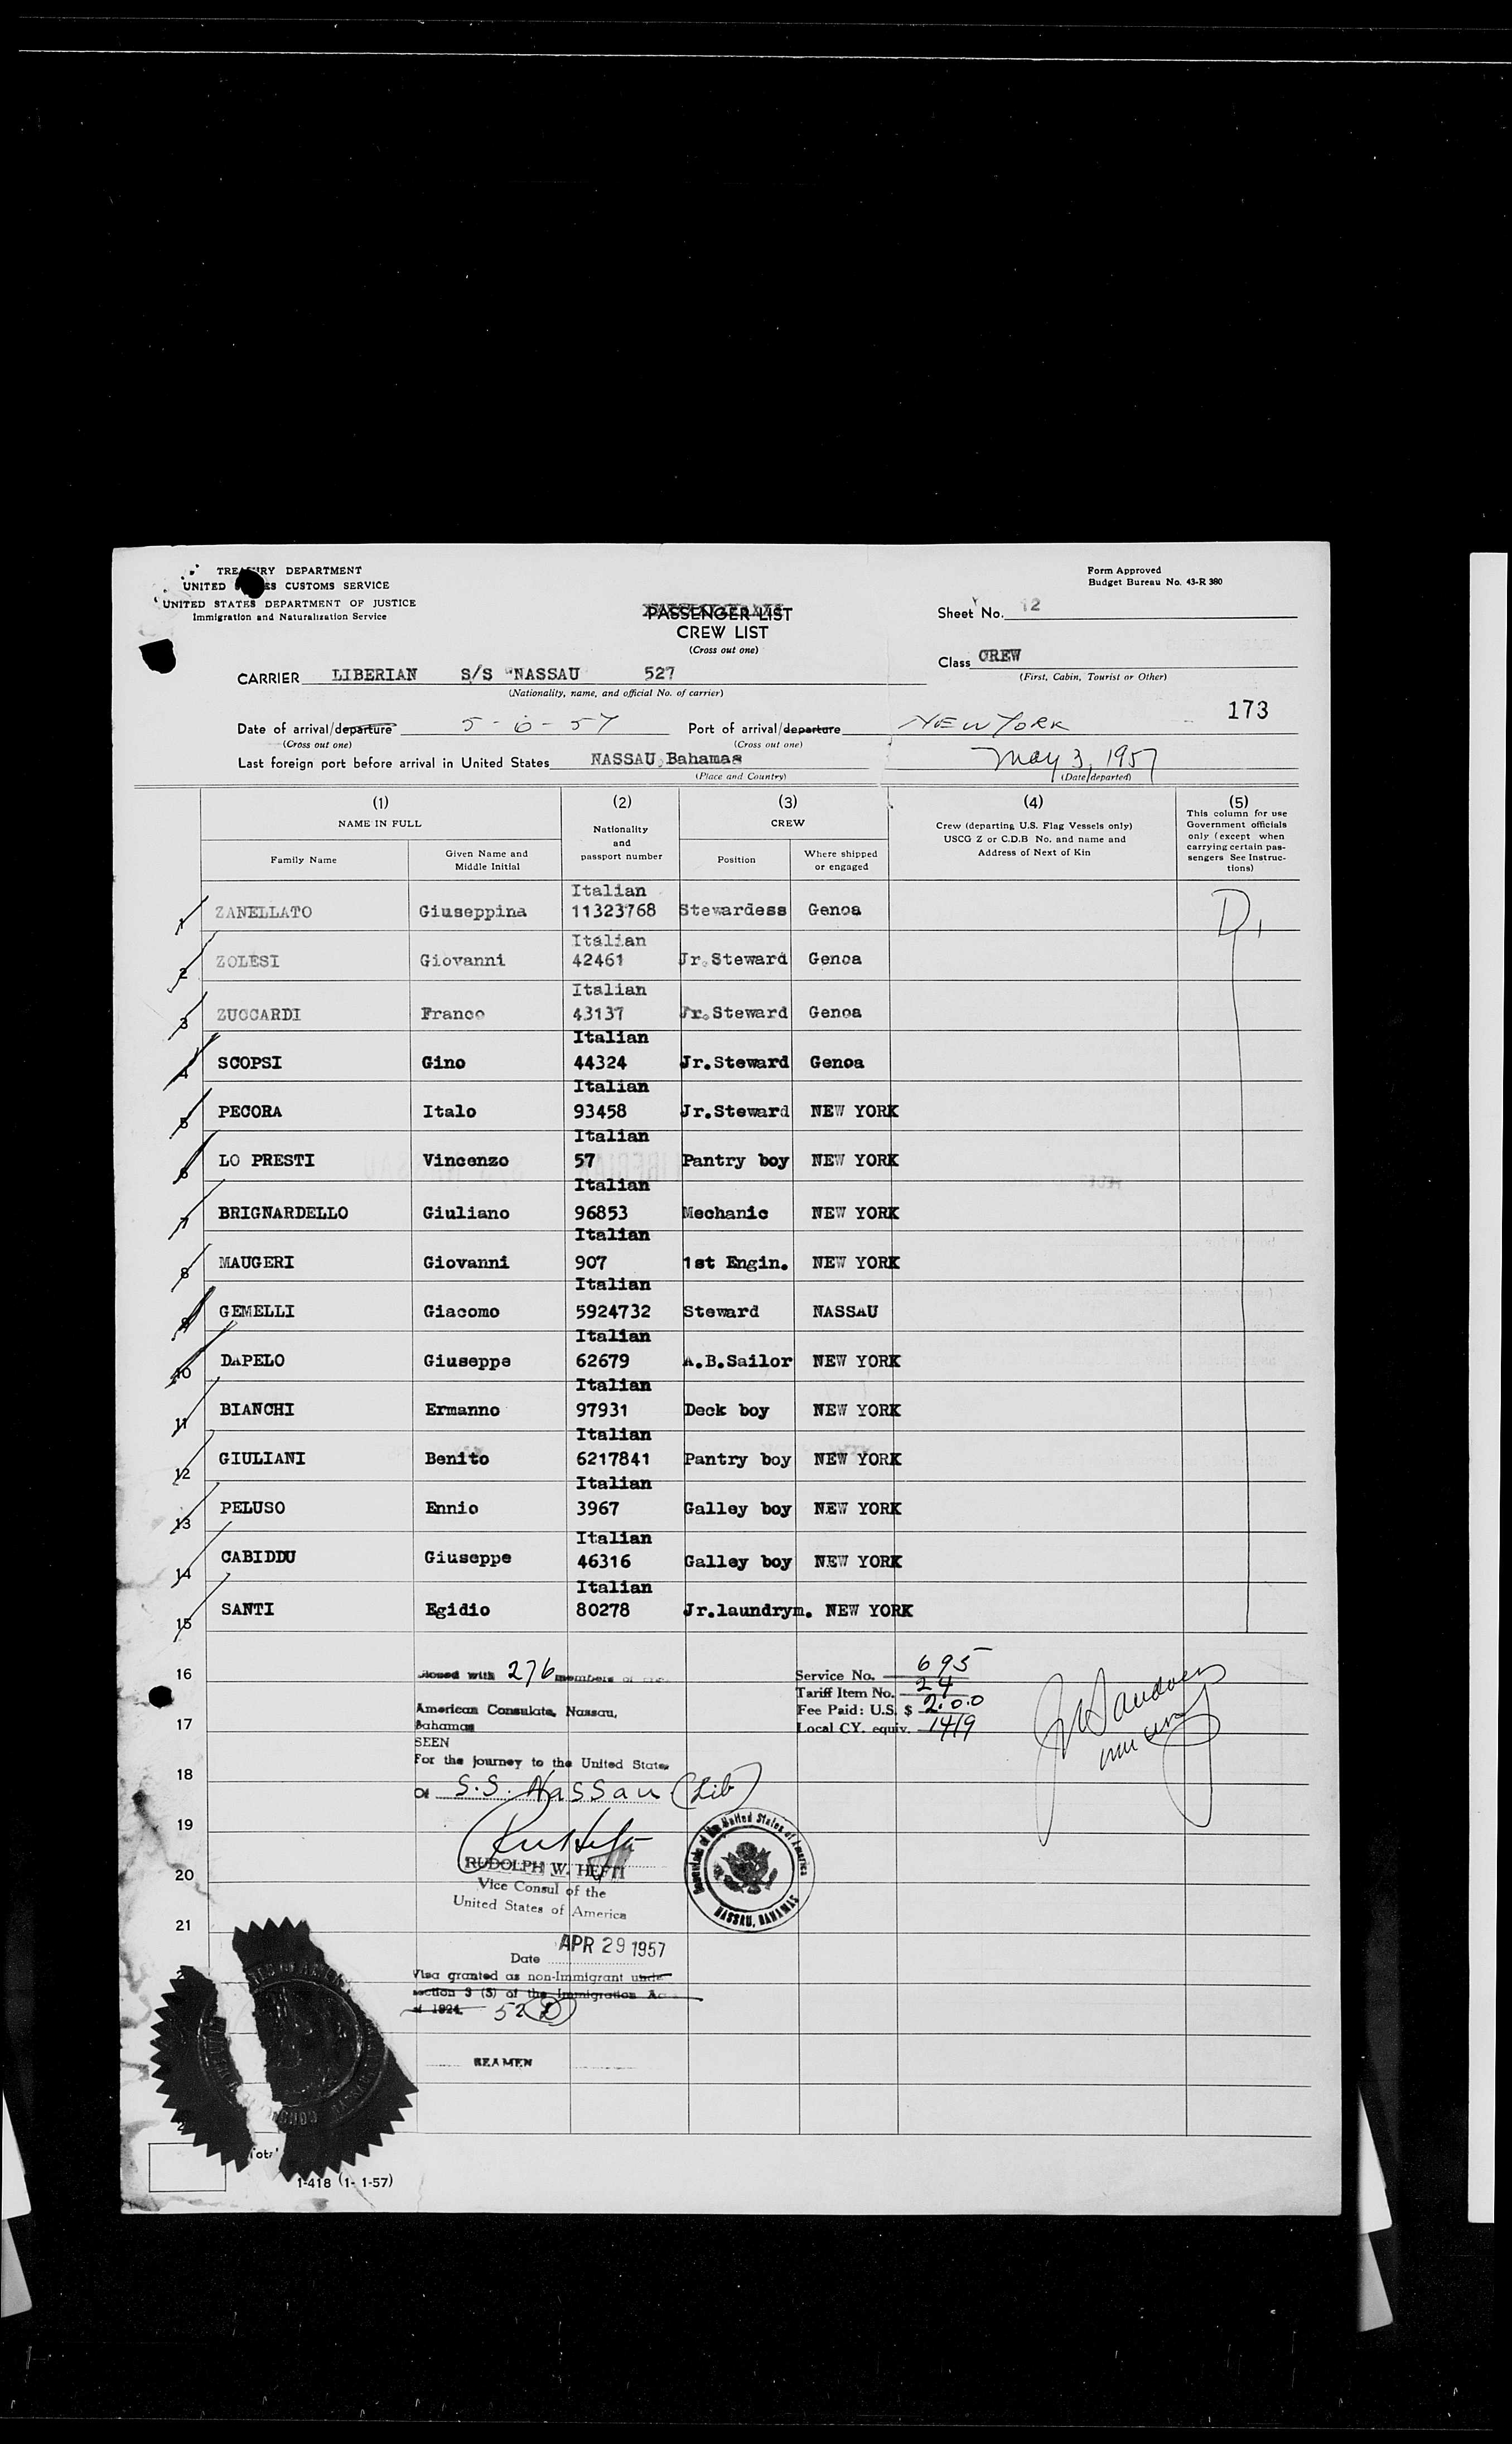 TREASURY DEPARTMENT
UNITED STATES CUSTOMS SERVICE
UNITED STATES DEPARTMENT OF JUSTICE
Immigration and Naturalization Service
Form Approved
Budget Bureau No. 43-R 380
PASSENGER LIST
CREW LIST
(Cross out one)
Sheet No. 12
Class CREW
(First, Cabin, Tourist or Other)
CARRIER LIBERIAN S/S "NASSAU 527
(Nationality, name, and official No. of carrier)
173
Date of arrival/departure 5-6-57 Port of arrival/departure NEW YORK
(Cross out one) (Cross out one)
Last foreign port before arrival in United States NASSAU, Bahamas May 3, 1957
(Place and Country) (Date departed)
(1) (2) (3) (4) (5)
NAME IN FULL Nationality and passport number CREW Crew (departing U.S. Flag Vessels only) USCG Z or C.D.B No. and name and Address of Next of Kin This column for use Government officials only (except when carrying certain passengers See Instructions)
Family Name Given Name and Middle Initial Position Where shipped or engaged
Italian
1 ZANELLATO Giuseppina 11323768 Stewardess Genoa D1
Italian
2 ZOLESI Giovanni 42461 Jr.Steward Genoa
Italian
3 ZUCCARDI Franco 43137 Jr.Steward Genoa
Italian
4 SCOPSI Gino 44324 Jr.Steward Genoa
Italian
5 PECORA Italo 93458 Jr.Steward NEW YORK
Italian
6 LO PRESTI Vincenzo 57 Pantry boy NEW YORK
Italian
7 BRIGNARDELLO Giuliano 96853 Mechanic NEW YORK
Italian
8 MAUGERI Giovanni 907 1st Engin. NEW YORK
Italian
9 GEMELLI Giacomo 5924732 Steward NASSAU
Italian
10 DAPELO Giuseppe 62679 A.B.Sailor NEW YORK
Italian
11 BIANCHI Ermanno 97931 Deck boy NEW YORK
Italian
12 GIULIANI Benito 6217841 Pantry boy NEW YORK
Italian
13 PELUSO Ennio 3967 Galley boy NEW YORK
Italian
14 CABIDDU Giuseppe 46316 Galley boy NEW YORK
Italian
15 SANTI Egidio 80278 Jr.laundrym. NEW YORK
16 closed with 276 members of Service No. 695
Tariff Item No. 24
American Consulate, Nassau, Fee Paid: U.S. $ 2.00
17 Bahamas Local CY. equiv. 14/9
SEEN
For the journey to the United States
18
Of S.S. Nassau (Lib)
19
20 RUDOLPH W. HEFTI
Vice Consul of the
United States of America
of the United States of America
NASSAU, BAHAMAS
21
Date APR 29 1957
Visa granted as non-Immigrant unde
section 3 (5) of the Immigration Ac
of 1924. 52 D
SEAMEN
Total
I-418 (1-1-57)